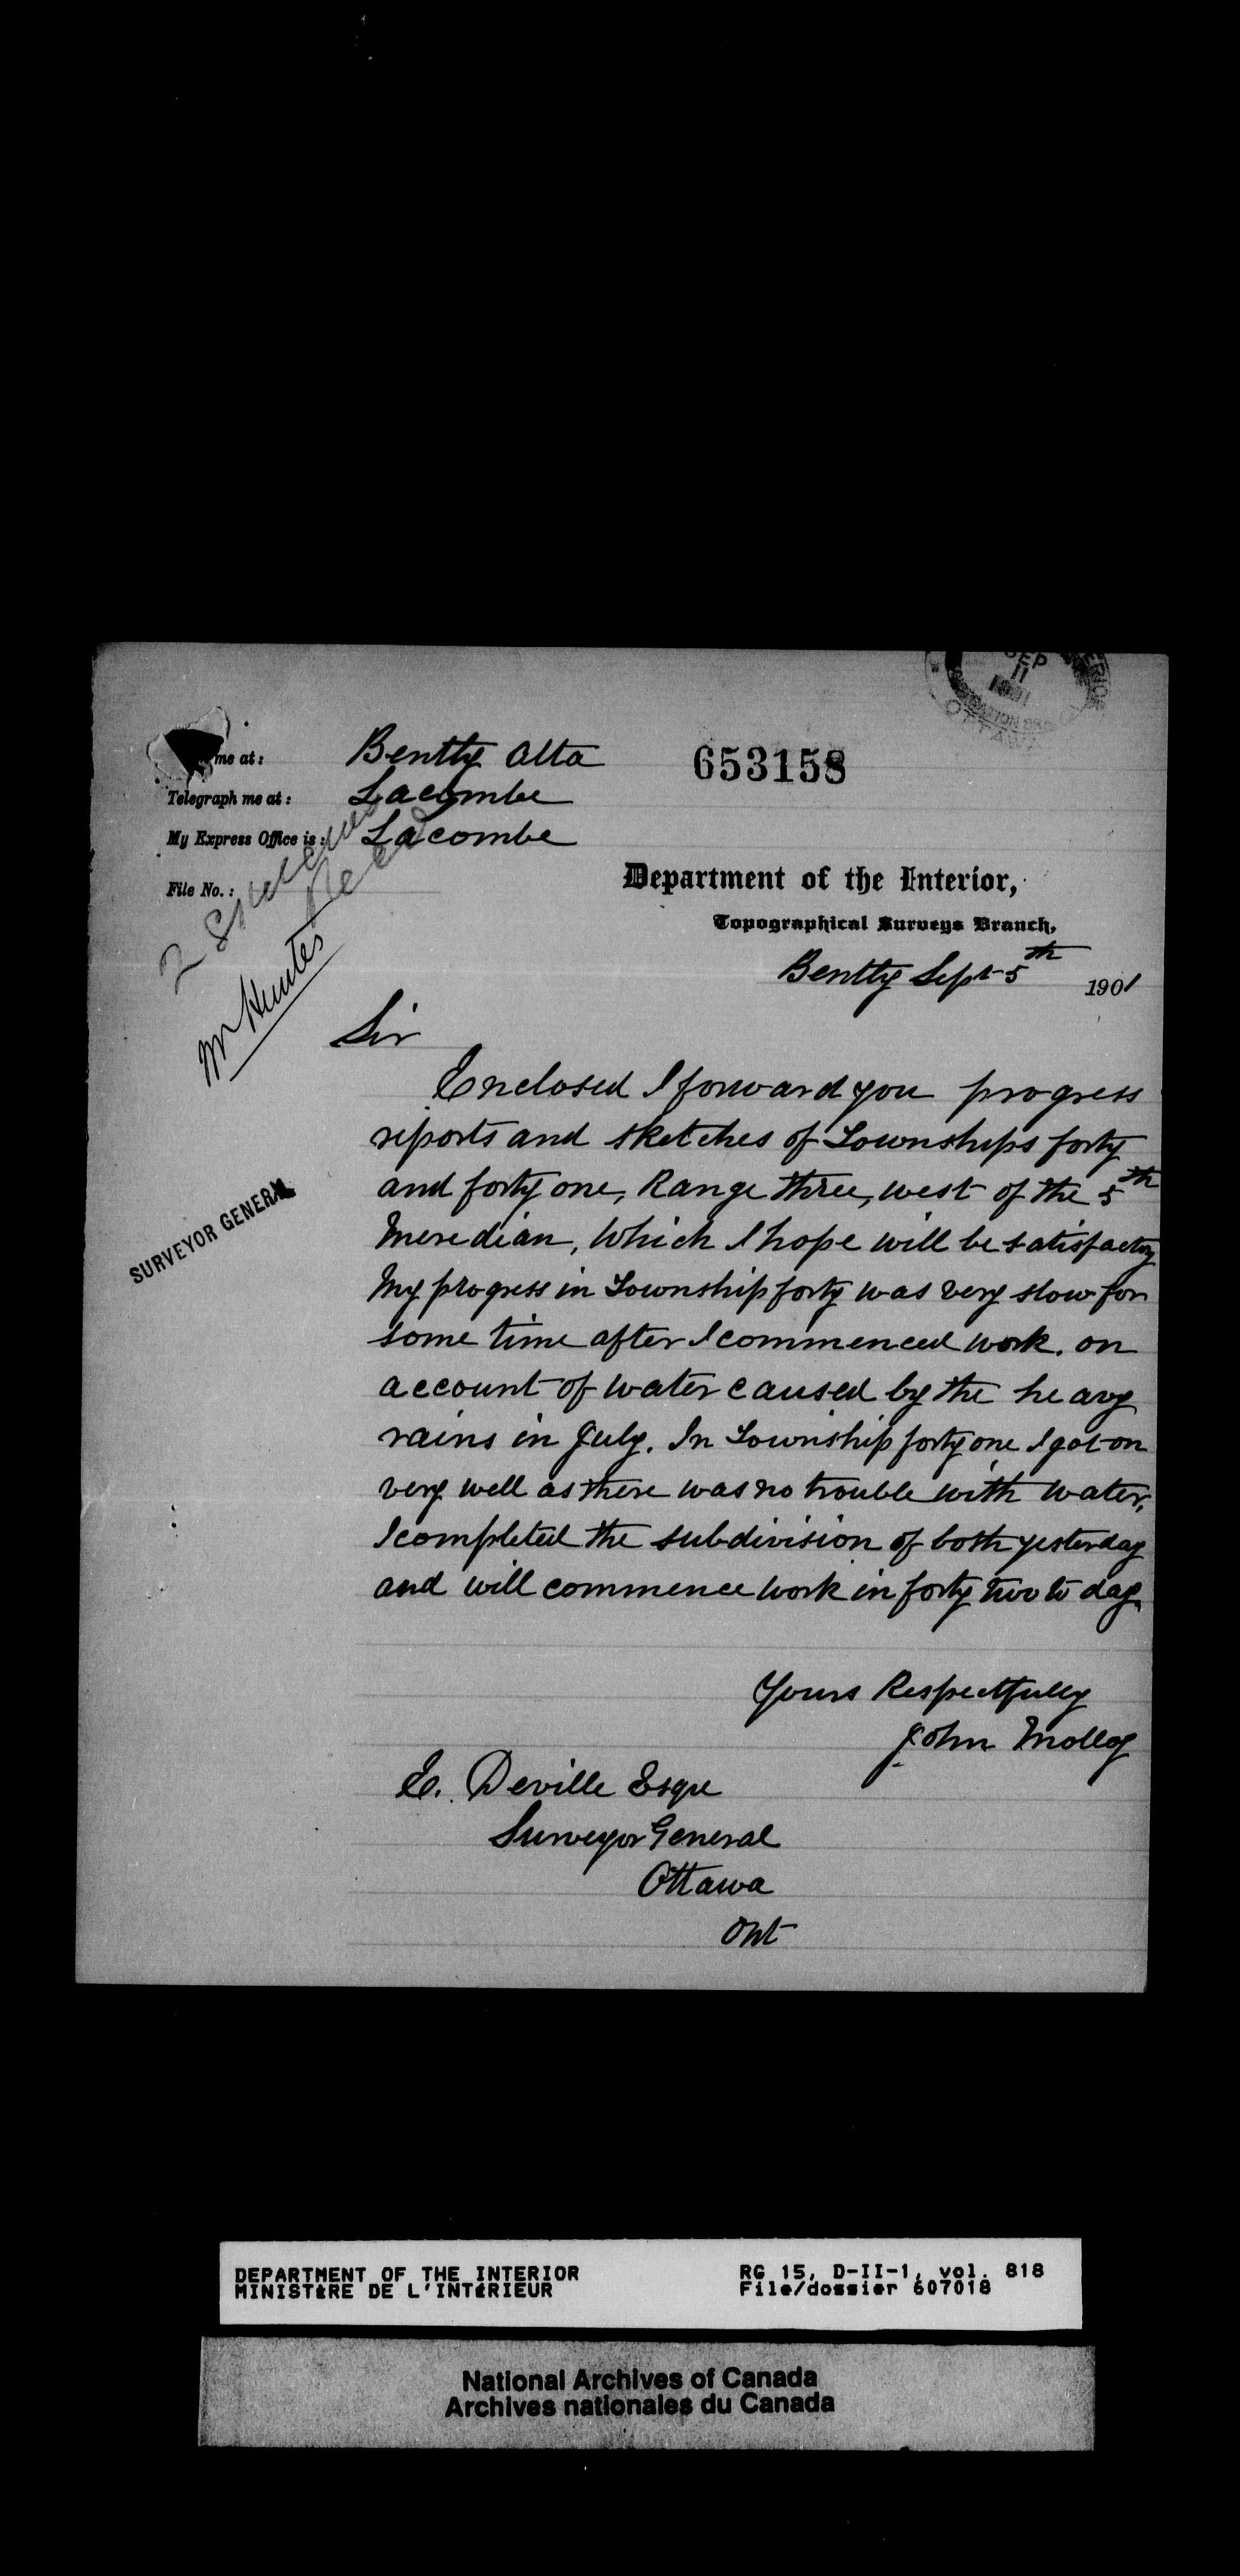 SEP
11
1901
OTTAWA
me at: Bentty Alta
653158
Telegraph me at: Lacombe
My Express Office is: Lacombe
File No.:
Department of the Interior,
Topographical Surveys Branch,
Bentty Sept 5th 1901
2
Mr Hunter
SURVEYOR GENERAL
Sir
Enclosed I forward you progress
reports and sketches of Townships forty
and forty one, Range three, west of the 5th
Meredian, Which I hope will be satisfactory
My progress in Township forty was very slow for
some time after I commenced work. on
account of water caused by the heavy
rains in July. In Township forty one I got on
very well as there was no trouble with water,
I completed the subdivision of both yesterday
and will commence work in forty two to day.
Yours Respectfully
John Molloy
E. Deville Esque
Surveyor General
Ottawa
Ont
DEPARTMENT OF THE INTERIOR
MINISTÈRE DE L'INTÉRIEUR
RG 15, D-II-1, vol. 818
File/dossier 607018
National Archives of Canada
Archives nationales du Canada